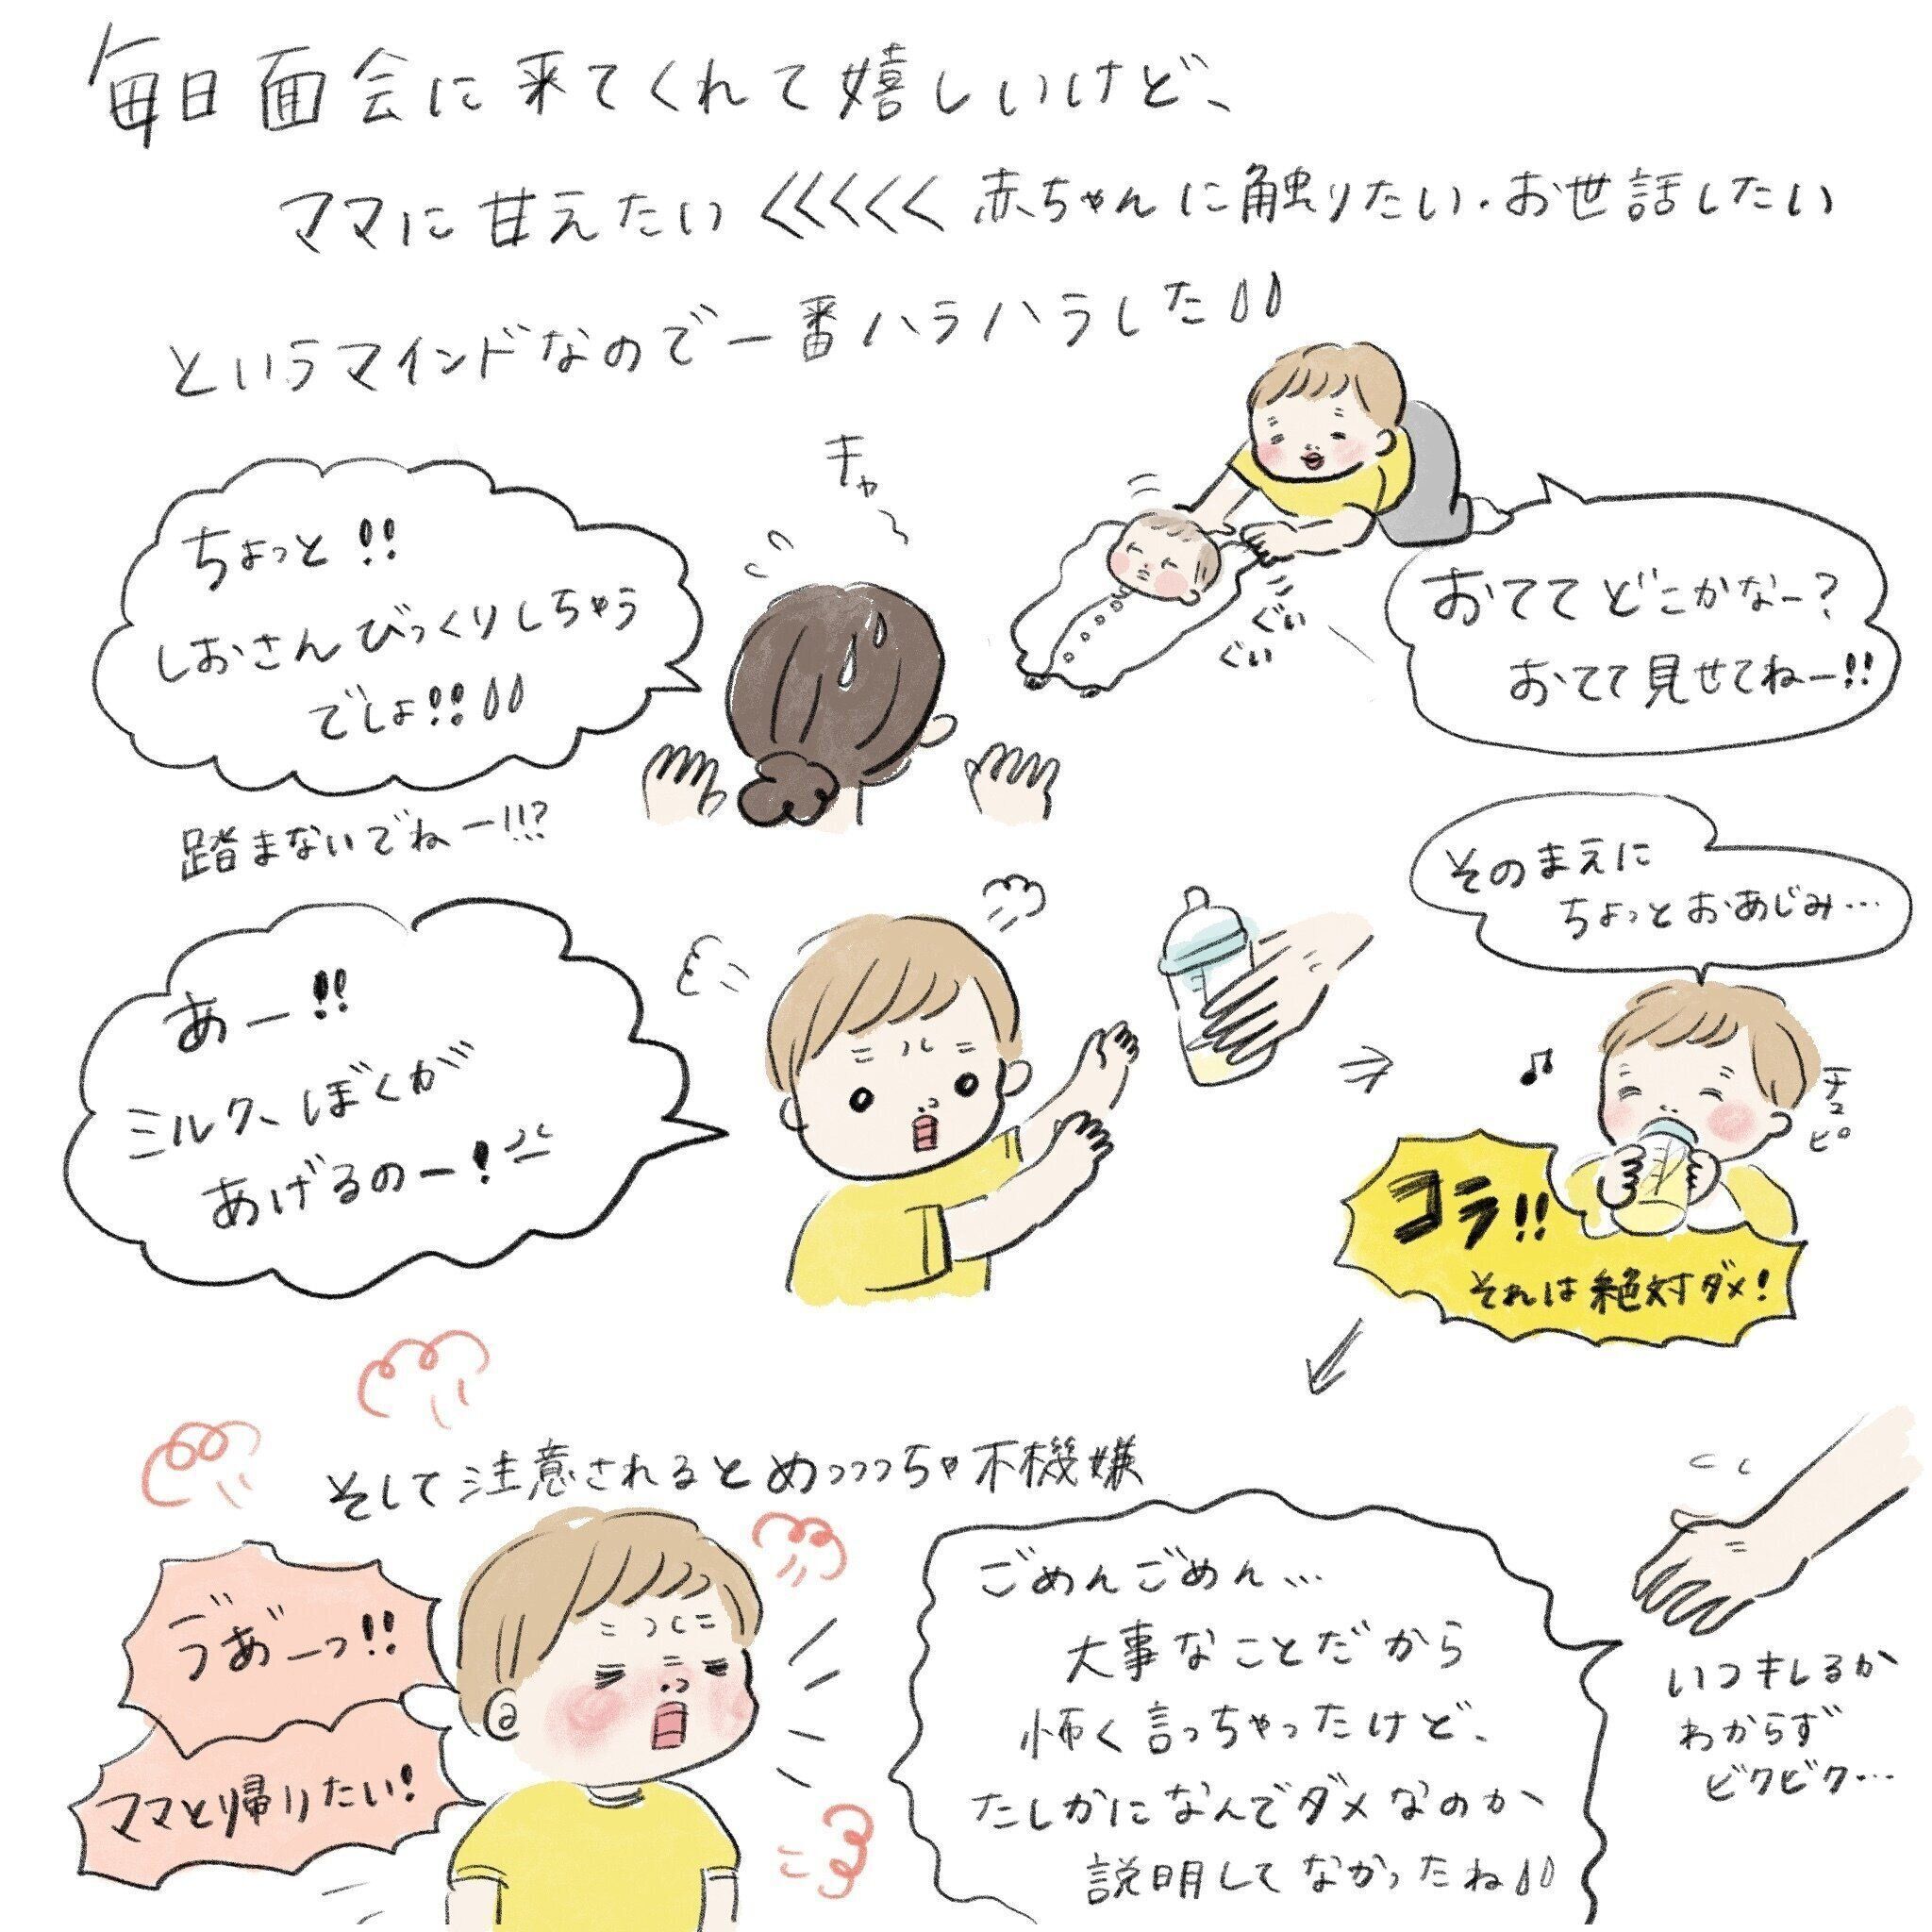 毎日面会に来てくれて嬉しいけど、
ママに甘えたい<<<<<赤ちゃんに触りたい・お世話したい
というマインドなので一番ハラハラした
キャー
ちょっと!!
しおさんびっくりしちゃう
でしょ!!
踏まないでねー!!?
ぐい
ぐい
おててどこかなー?
おてて見せてねー!!
あー!!
ミルク、ぼくが
あげるのー!
そのまえに
ちょっとおあじみ…
チュピ
コラ!!
それは絶対ダメ!
そして注意されるとめっっっちゃ不機嫌
ゔあ゙ーっ!!
ママと帰りたい!
ごめんごめん…
大事なことだから
怖く言っちゃったけど、
たしかになんでダメなのか
説明してなかったね
いつキレるか
わからず
ビクビク…